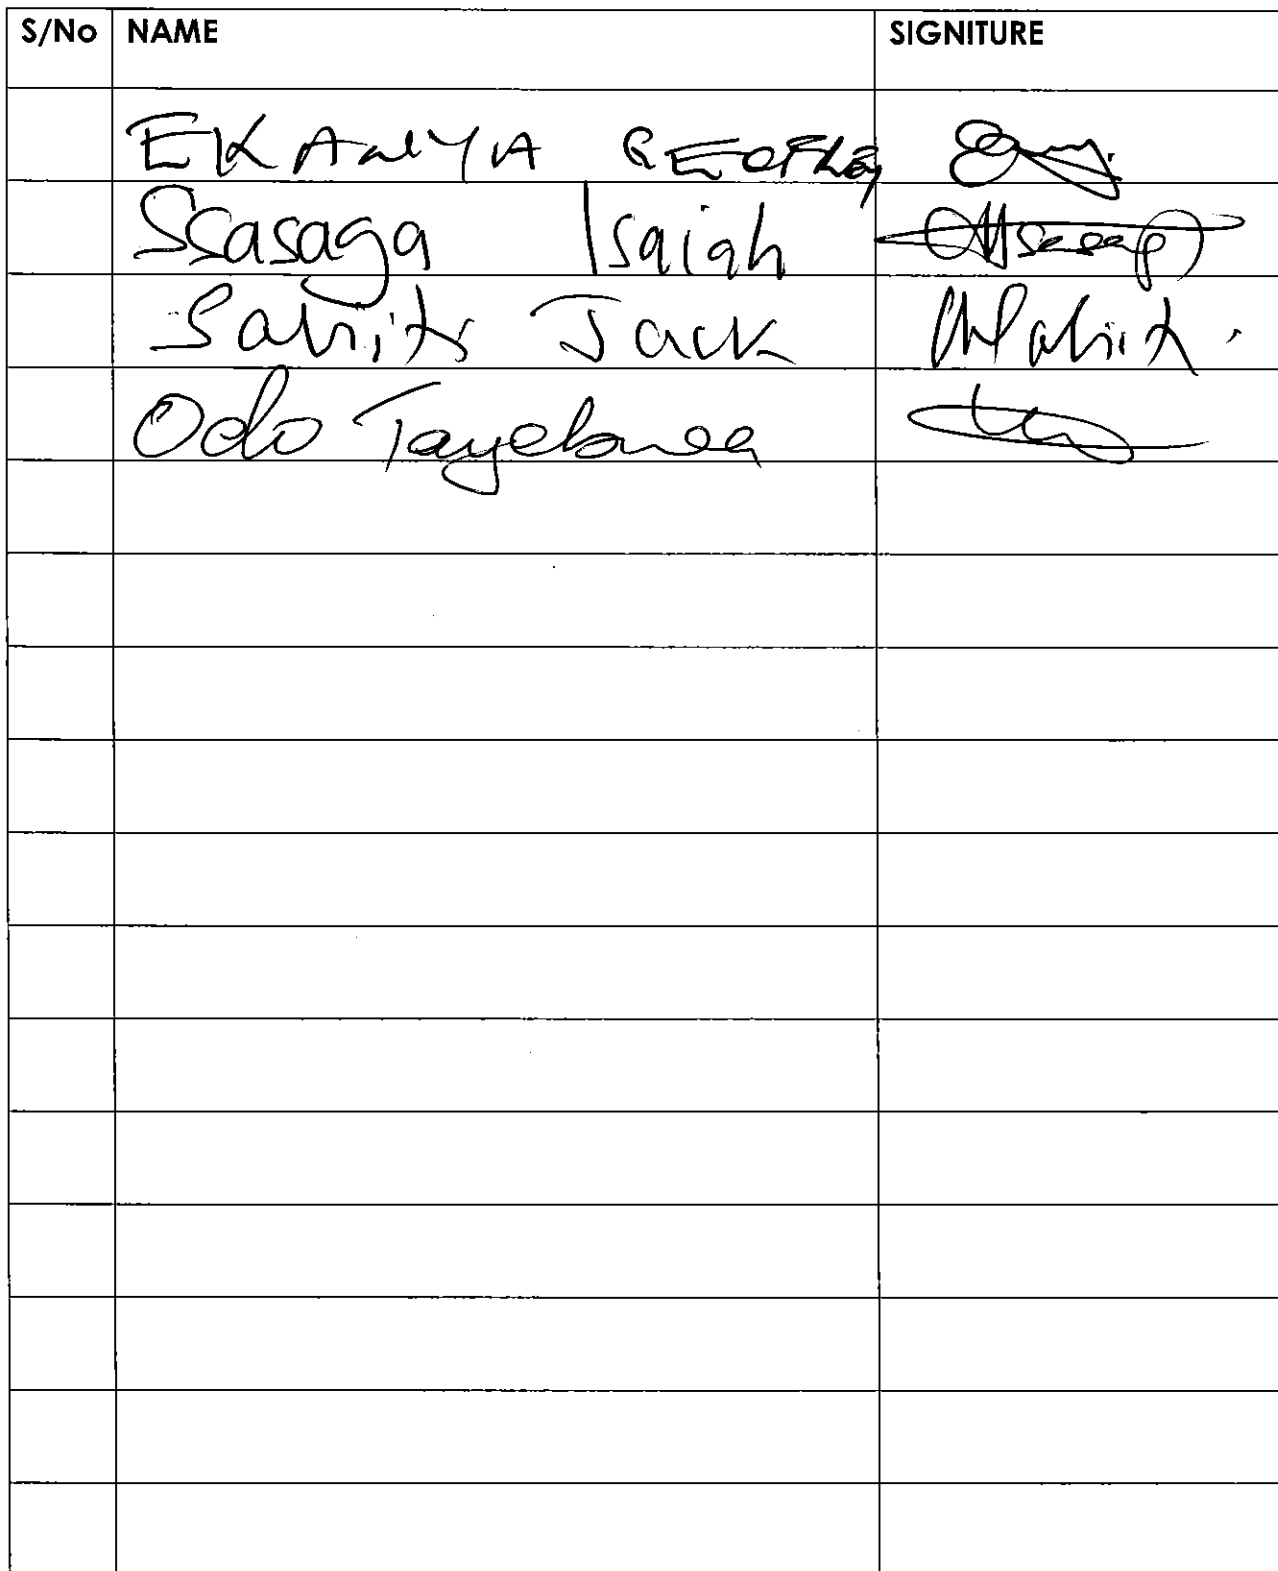 S/No NAME SIGNITURE
EKANYA GEOFREY
Ssasaga Isaiah
Sabiiti Jack
Odo Tayebwa